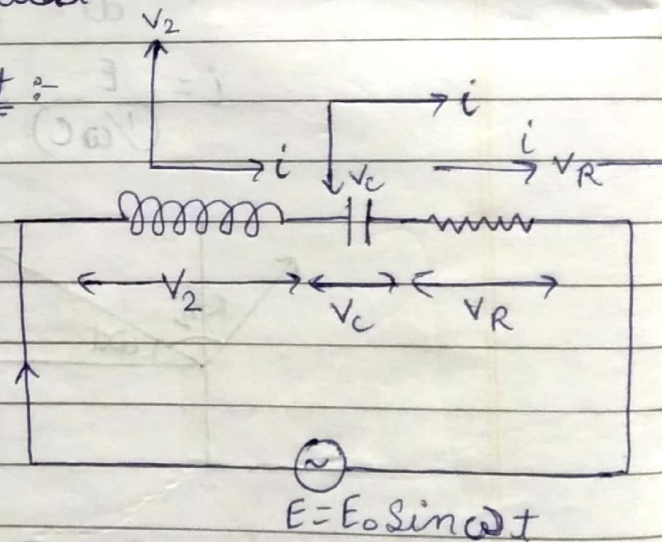 V2
t :-
i
i
i
Vc
VR
V2
Vc
VR
E = E₀ Sin ω t